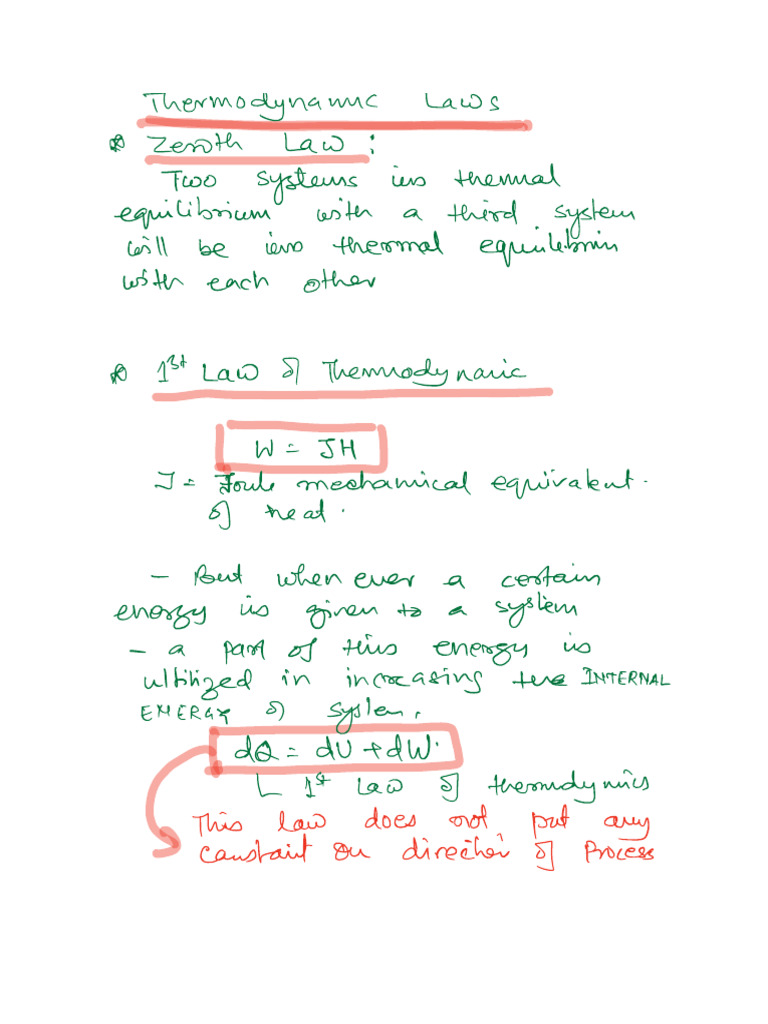 Thermodynamic Laws
* Zeroth Law :
Two systems in thermal
equilibrium with a third system
will be in thermal equilibrim
with each other
* 1st Law of Thermodynamic
W = JH
J = Joule mechanical equivalent.
of heat.
- But when ever a certain
energy is given to a system
- a part of this energy is
ultilized in increasing the INTERNAL
ENERGY of system.
dQ = dU + dW.
L 1st Law of thermdynics
This law does not put any
constaint on direction of Process